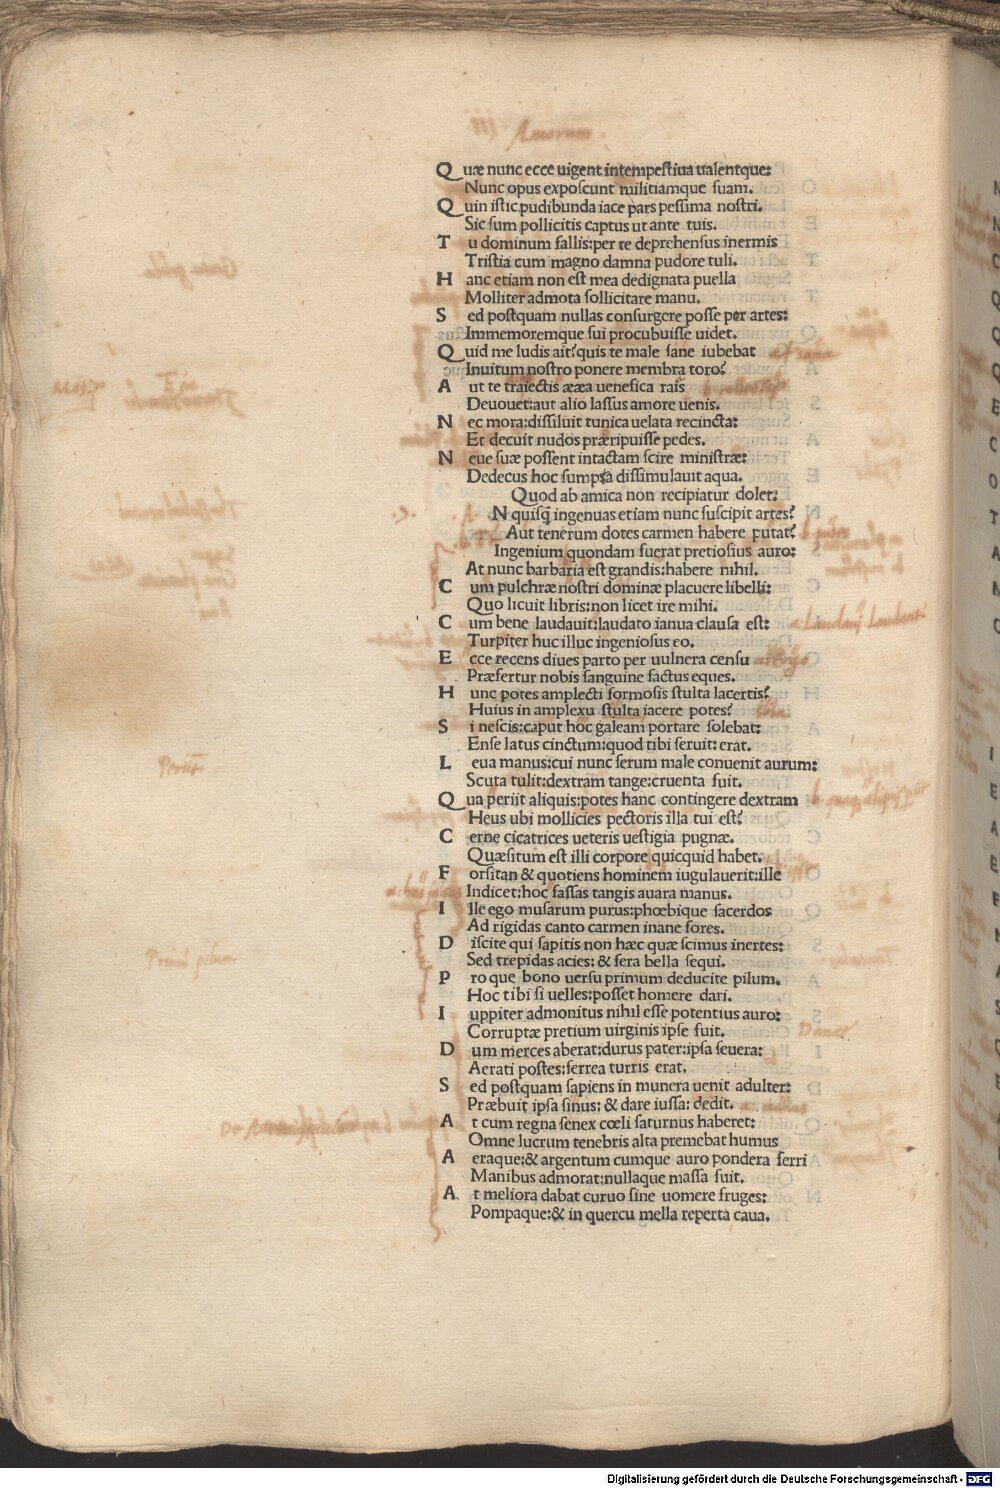 Amorum
Quæ nunc ecce uigent intempestiua ualentque:
Nunc opus exposcunt militiamque suam.
Quin istic pudibunda iace pars pessima nostri.
Sic sum pollicitis captus ut ante tuis.
Tu dominum fallis: per te deprehensus inermis
Tristia cum magno damna pudore tuli.
Hanc etiam non est mea dedignata puella
Molliter admota sollicitare manu.
Sed postquam nullas consurgere posse per artes:
Immemoremque sui procubuisse uidet.
Quid me ludis ait? quis te male sane iubebat
Inuitum nostro ponere membra toro?
Aut te traiectis ææa uenefica ras
Deuouet: aut alio lassus amore uenis.
Nec mora: dissiluit tunica uelata recincta:
Et decuit nudos præripuisse pedes.
Neue suæ possent intactam scire ministræ:
Dedecus hoc sumpsa dissimulauit aqua.
Quod ab amica non recipiatur dolet:
N quisq̃ ingenuas etiam nunc suscipit artes?
Aut tenerum dotes carmen habere putat?
Ingenium quondam fuerat pretiosius auro:
At nunc barbaria est grandis: habere nihil.
Cum pulchræ nostri dominæ placuere libelli:
Quo licuit libris: non licet ire mihi.
Cum bene laudauit: laudato ianua clausa est:
Turpiter huc illuc ingeniosus eo.
Ecce recens diues parto per uulnera censu
Præfertur nobis sanguine factus eques.
Hunc potes amplecti formosis stulta lacertis?
Huius in amplexu stulta iacere potes?
Si nescis: caput hoc galeam portare solebat:
Ense latus cinctum: quod tibi seruit: erat.
Leua manus: cui nunc serum male conuenit aurum:
Scuta tulit: dextram tange: cruenta fuit.
Qua periit aliquis: potes hanc contingere dextram
Heus ubi mollicies pectoris illa tui est?
Cerne cicatrices ueteris uestigia pugnæ.
Quæsitum est illi corpore quicquid habet.
Forsitan & quotiens hominem iugulauerit: ille
Indicet: hoc fassas tangis auara manus.
Ille ego musarum purus: phœbique sacerdos
Ad rigidas canto carmen inane fores.
Discite qui sapitis non hæc quæ scimus inertes:
Sed trepidas acies: & fera bella sequi.
Proque bono uersu primum deducite pilum.
Hoc tibi si uelles: posset homere dari.
Iuppiter admonitus nihil esse potentius auro:
Corruptæ pretium uirginis ipse fuit.
Dum merces aberat: durus pater: ipsa seuera:
Aerati postes: ferrea turris erat.
Sed postquam sapiens in munera uenit adulter:
Præbuit ipsa sinus: & dare iussa: dedit.
At cum regna senex cœli saturnus haberet:
Omne lucrum tenebris alta premebat humus
Aeraque: & argentum cumque auro pondera ferri
Manibus admorat: nullaque massa fuit.
At meliora dabat curuo sine uomere fruges:
Pompaque: & in quercu mella reperta caua.
Digitalisierung gefördert durch die Deutsche Forschungsgemeinschaft - DFG